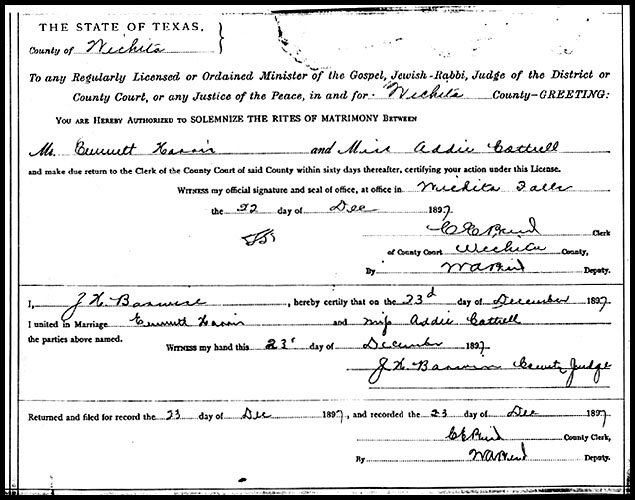 THE STATE OF TEXAS,
County of Wichita
To any Regularly Licensed or Ordained Minister of the Gospel, Jewish-Rabbi, Judge of the District or
County Court, or any Justice of the Peace, in and for Wichita County-GREETING:
YOU ARE HEREBY AUTHORIZED TO SOLEMNIZE THE RITES OF MATRIMONY BETWEEN
Mr. Emmett and Miss Addie Cottrell
and make due return to the Clerk of the County Court of said County within sixty days thereafter, certifying your action under this License.
WITNESS my official signature and seal of office, at office in Wichita Falls
the 22 day of Dec 1897.
Clerk
of County Court Wichita County,
By Deputy.
I, J. H. Barwise, hereby certify that on the 23d day of December 1897
I united in Marriage Emmett and Miss Addie Cottrell
the parties above named.
WITNESS my hand this 23 day of December 1897
J. H. Barwise County Judge
Returned and filed for record the 23 day of Dec 1897, and recorded the 23 day of Dec 1897
County Clerk,
By Deputy.